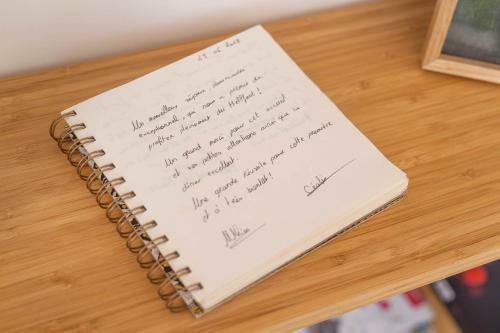 Un merveilleux séjour
exceptionnel, qui nous a permis de
profiter
Un grand merci pour cet accueil
et vos petites attentions ainsi que ce
dîner excellent.
Une grande réussite pour cette première
et à très bientôt!